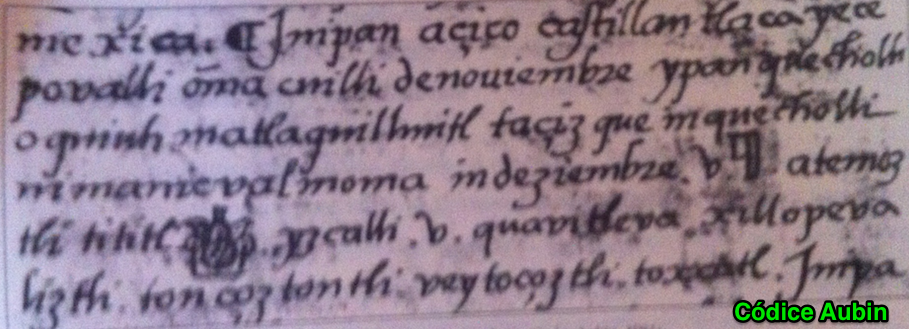 mexica. ¶ Jmpan açico castillan tlaca yece
povalli oma cuilli denouiembre ypan quecholli
oquiuh matlaquilhuitl taçiz que inquecholli
nimanic valmoma indeziembre. v. ¶ atemoz
tli tititl yzcalli. v. quavitleva. xillopeva
liztli. tonçoztontli. veytoçoztli. toxcatl. Jmpa
Códice Aubin